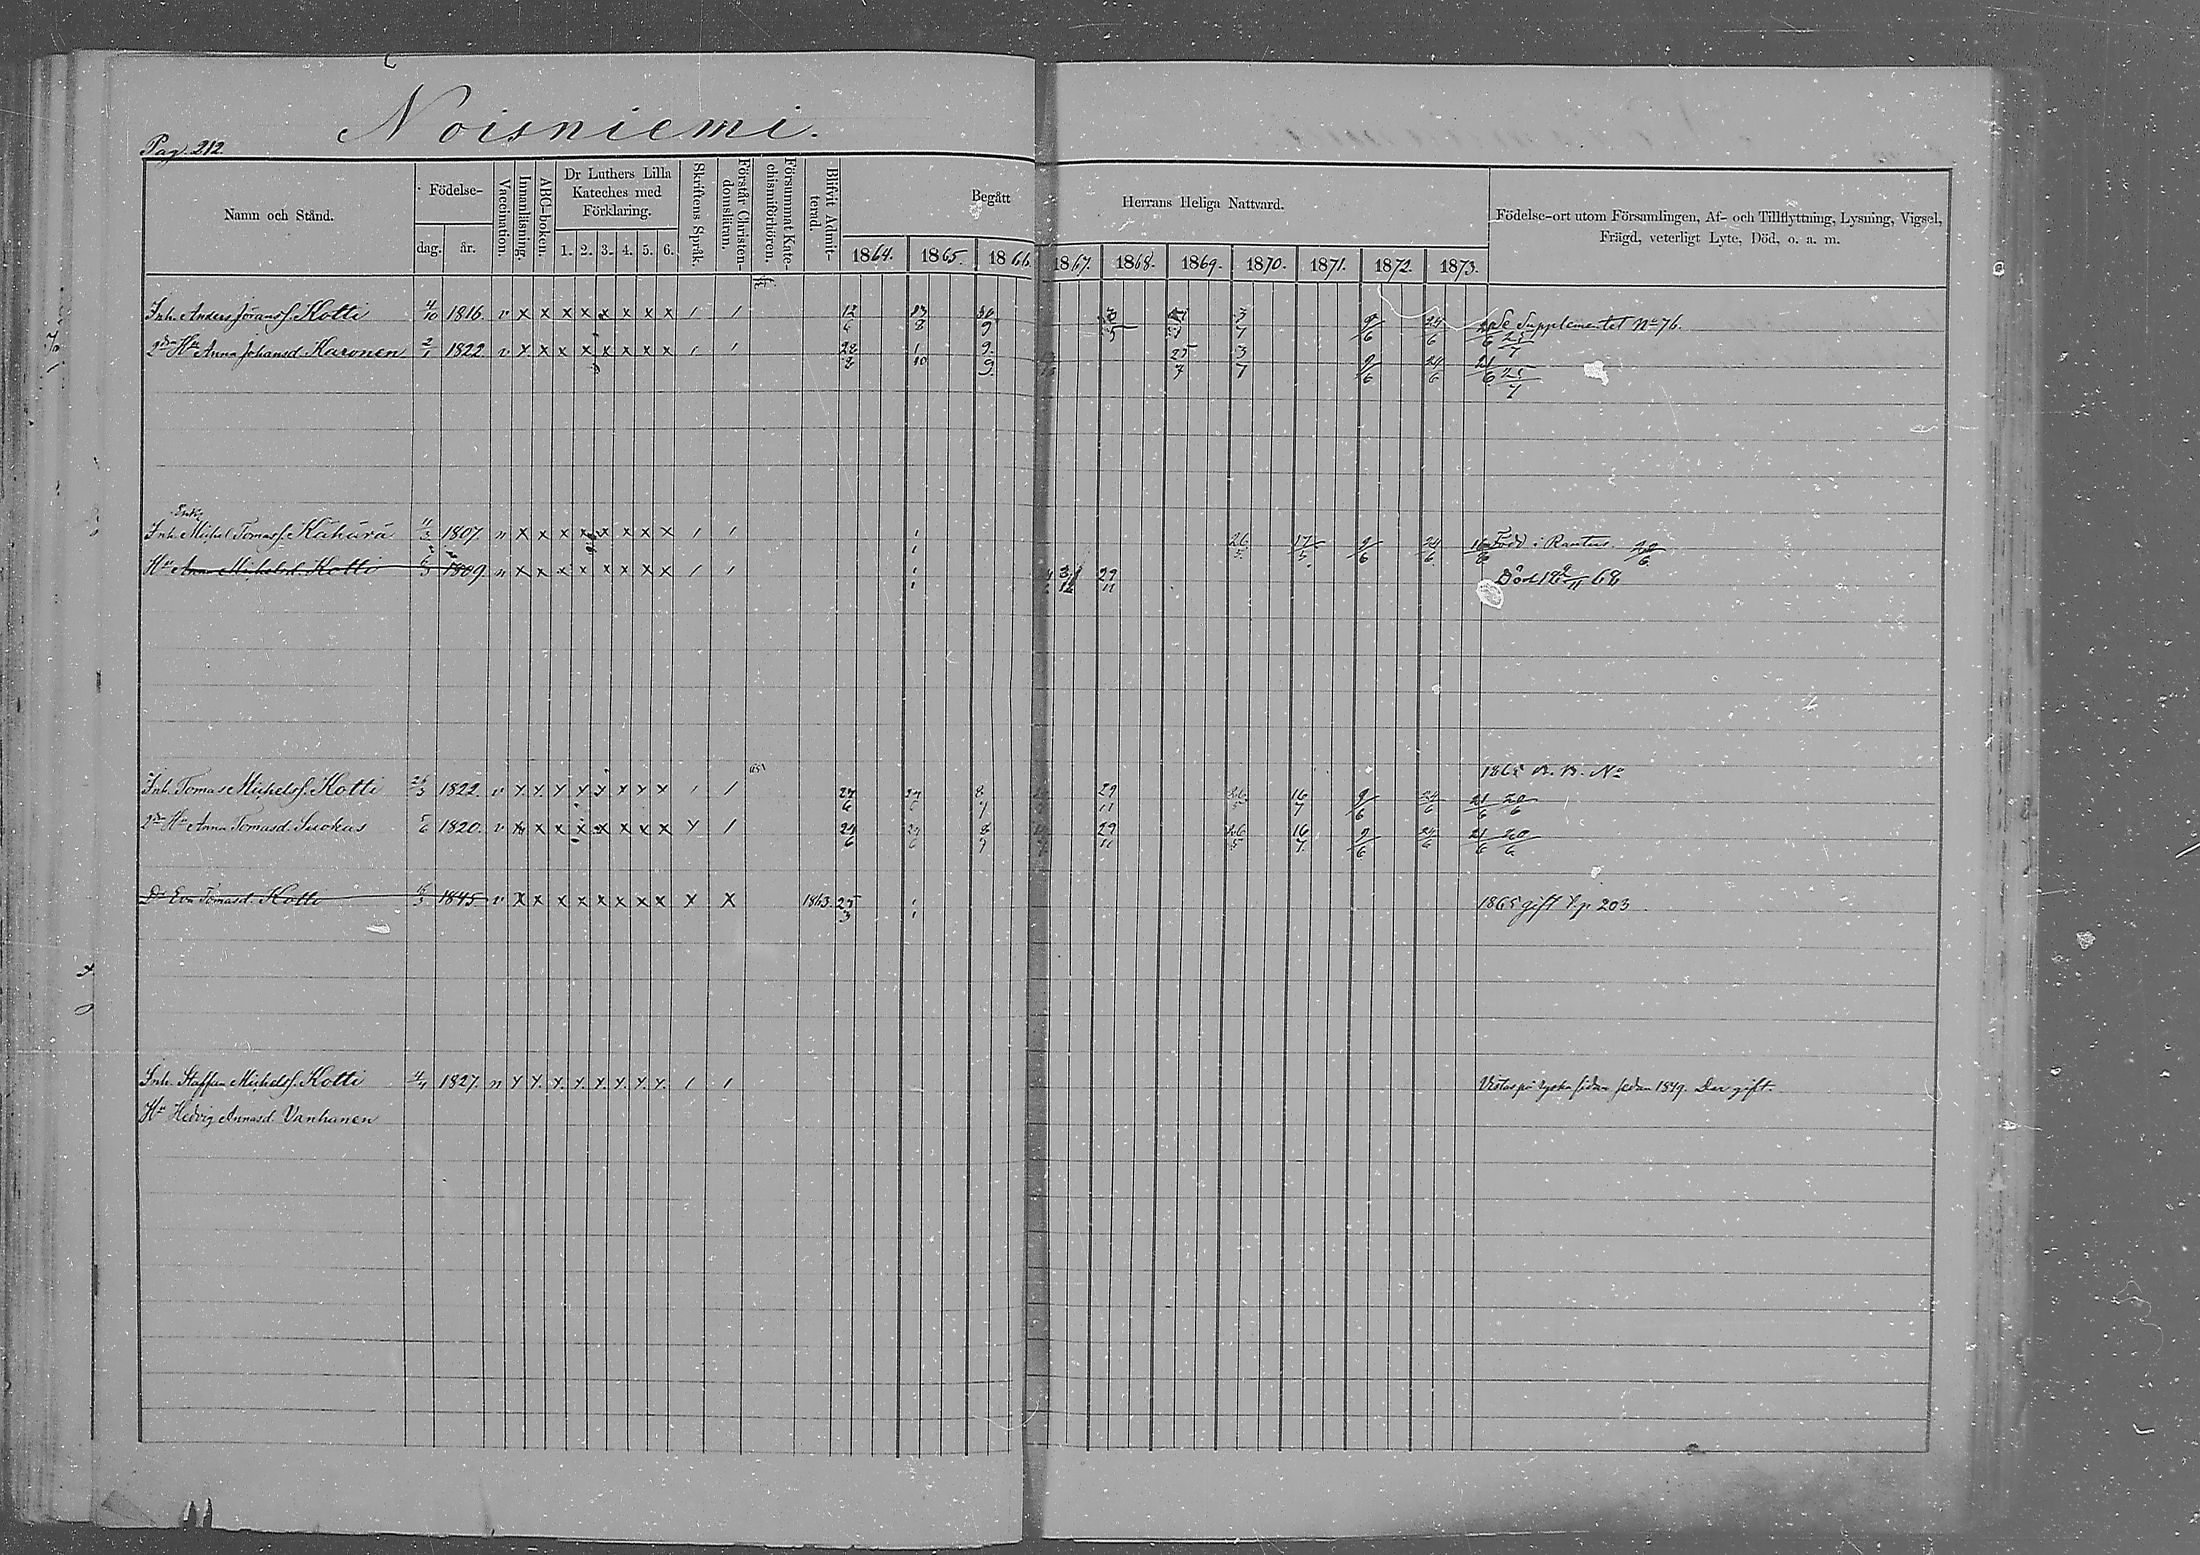 Noisniemi.
Pag. 212.
Namn och Stånd.
Födelse-
dag.
år.
Vaccination.
Innanläsning.
ABC-boken.
Dr Luthers Lilla
Kateches med
Förklaring.
1. 2. 3. 4. 5. 6.
Skriftens Språk.
Förstår Christen-
domsläran.
Försummat Kate-
chismiförhören.
Blifvit Admit-
terad.
Begått
Herrans Heliga Nattvard.
1864. 1865. 1866. 1867. 1868. 1869. 1870. 1871. 1872. 1873.
Födelse-ort utom Församlingen, Af- och Tillflyttning, Lysning, Vigsel,
Frägd, veterligt Lyte, Död, o. a. m.
Inh. Anders Jöranss. Kotti 4/10 1816. v x x x x x x x x / / 12/6 9/6 24/6 Se Supplementet No 76.
2dra Hu Anna Johansd. Karonen 2/1 1822 v x x x x x x x x / / 25/7 3/7 9/6 24/6 21/6 25/7
Enkl.
Inh. Michel Tomass. Kähärä 4/3 1807. n x x x x x x x x / / 26/5 17/5 9/6 24/6 Född i Rautus. 20/6
Hu Anna Michelsd. Kotti 1809. n x x x x x x x x / / 29/11 Död 18 9/11 68
1865 N. B. No
Inh. Tomas Michelss. Kotti 26/3 1822. v x x x x x x x x / / 27/6 29/11 26/5 16/7 9/6 24/6 21/6 20/6
2dra Hu Anna Tomasd. Suokas 5/6 1820. v x x x x x x x x x / 24/6 8/7 29/11 26/5 16/7 9/6 24/6 21/6 20/6
Dr Eva Tomasd. Kotti 1845 v x x x x x x x x x x 1863. 25/3 1865 gift V. p. 203
Inh. Staffan Michelss. Kotti 4/4 1827. n x x x x x x x x / / Vistas på ryska sidan sedan 1849. Der gift.
Hu Hedvig Annasd. Vanhanen